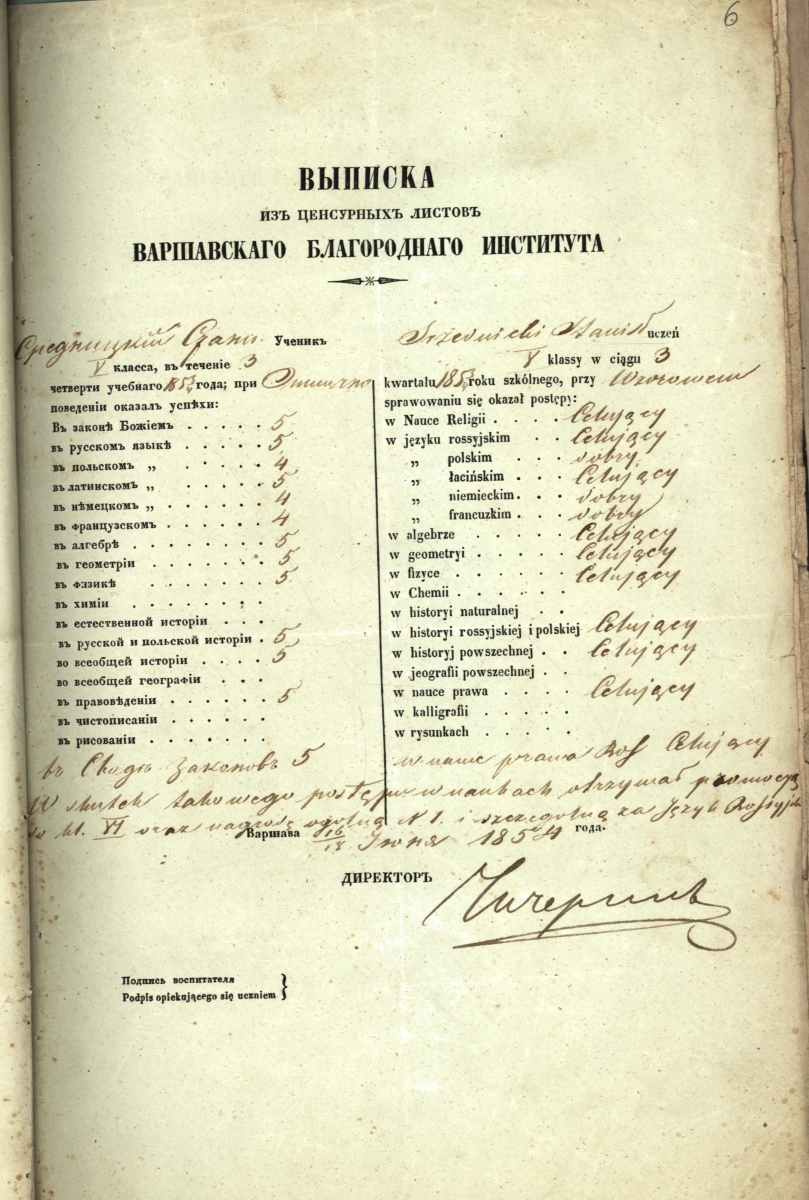 6
ВЫПИСКА
ИЗЪ ЦЕНСУРНЫХЪ ЛИСТОВЪ
ВАРШАВСКАГО БЛАГОРОДНАГО ИНСТИТУТА
Средницкій Стани. Ученикъ
V класса, въ теченіе 3
четверти учебнаго 1853/4 года; при Отлично
поведеніи оказалъ успѣхи:
Въ законѣ Божіемъ . . . . . 5
въ русскомъ языкѣ . . . . . 5
въ польскомъ „ . . . . . 4
въ латинскомъ „ . . . . . 5
въ нѣмецкомъ „ . . . . . 4
въ французскомъ . . . . . 4
въ алгебрѣ . . . . . . . 5
въ геометріи . . . . . . 5
въ физикѣ . . . . . . 5
въ химіи . . . . . . .
въ естественной исторіи . . .
въ русской и польской исторіи . 5
во всеобщей исторіи . . . . 5
во всеобщей географіи . . .
въ правовѣденіи . . . . . . 5
въ чистописаніи . . . . . .
въ рисованіи . . . . . . .
въ Сводѣ Законовъ 5
Srzednicki Stanisł uczeń
V klassy w ciągu 3
kwartału 1853/4 roku szkólnego, przy Wzorowem
sprawowaniu się okazał postępy:
w Nauce Religii . . . . Celujący
w języku rossyjskim . . Celujący
„ polskim . . . dobry
„ łacińskim . . . Celujący
„ niemieckim . . . dobry
„ francuzkim . . . dobry
w algebrze . . . . . Celujący
w geometryi . . . . . Celujący
w fizyce . . . . . . Celujący
w Chemii . . . . . .
w historyi naturalnej . .
w historyi rossyjskiej i polskiej Celujący
w historyj powszechnej . . Celujący
w jeografii powszechnej . .
w nauce prawa . . . . Celujący
w kalligrafii . . . . .
w rysunkach . . . . .
w nauce prawa Ros Celujący
W skutek takowego postępu w naukach otrzymał promocyą
do kl. VI oraz nagrodę ogólną N 1. i szczególną za Język Rossyjski
Варшава 16/18 Іюня 1854 года.
ДИРЕКТОРЪ
Чичеринъ
Подпись воспитателя
Podpis opiekującego się uczniem }